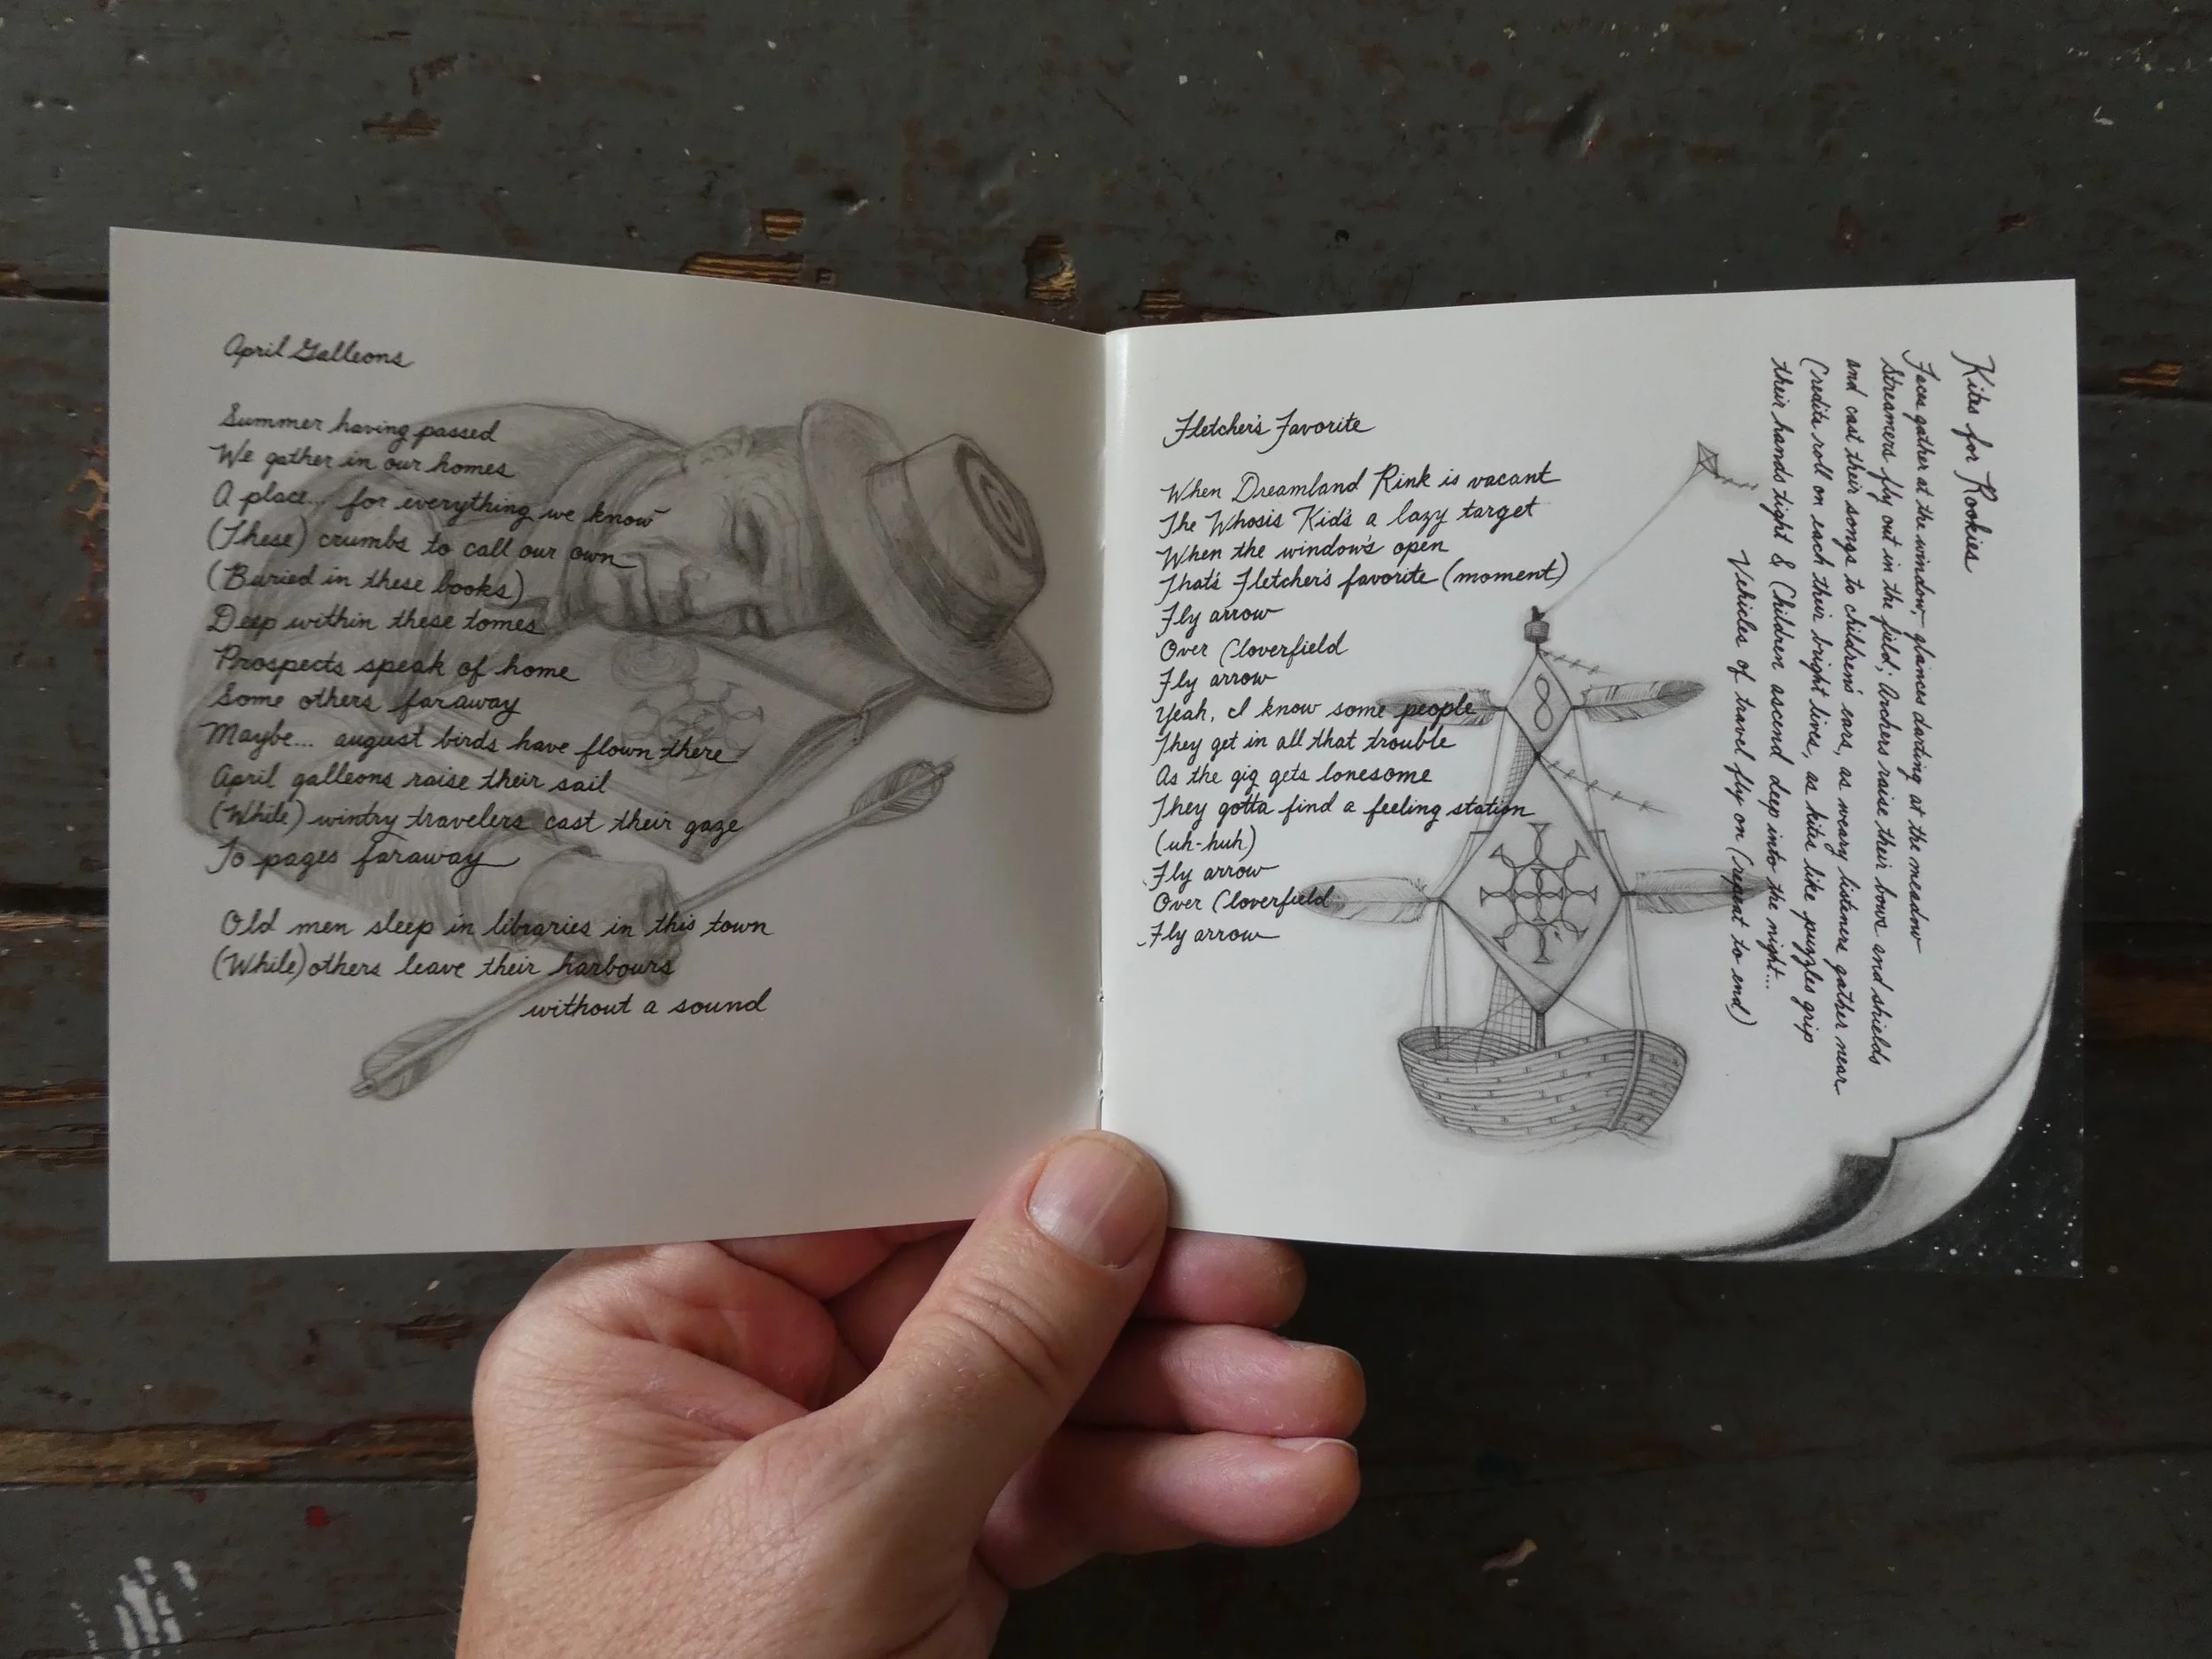 April Galleons
Summer having passed
We gather in our homes
A place... for everything we know
(These) crumbs to call our own
(Buried in these books)
Deep within these tomes
Prospects speak of home
Some others faraway
Maybe... august birds have flown there
April galleons raise their sail
(While) wintry travelers cast their gaze
To pages faraway
Old men sleep in libraries in this town
(While) others leave their harbours
without a sound
Fletcher's Favorite
When Dreamland Rink is vacant
The Whosis Kid's a lazy target
When the window's open
That's Fletcher's favorite (moment)
Fly arrow
Over Cloverfield
Fly arrow
Yeah, I know some people
They get in all that trouble
As the gig gets lonesome
They gotta find a feeling station
(uh-huh)
Fly arrow
Over Cloverfield
Fly arrow
Kites for Rookies
Faces gather at the window, glances darting at the meadow
Streamers fly out in the field; Archers raise their bows and shields
and cast their songs to children's ears, as weary listeners gather near
Credits roll on each their bright lives, as kites like puzzles grip
their hands tight & Children ascend deep into the night...
Vehicles of travel fly on (repeat to end)